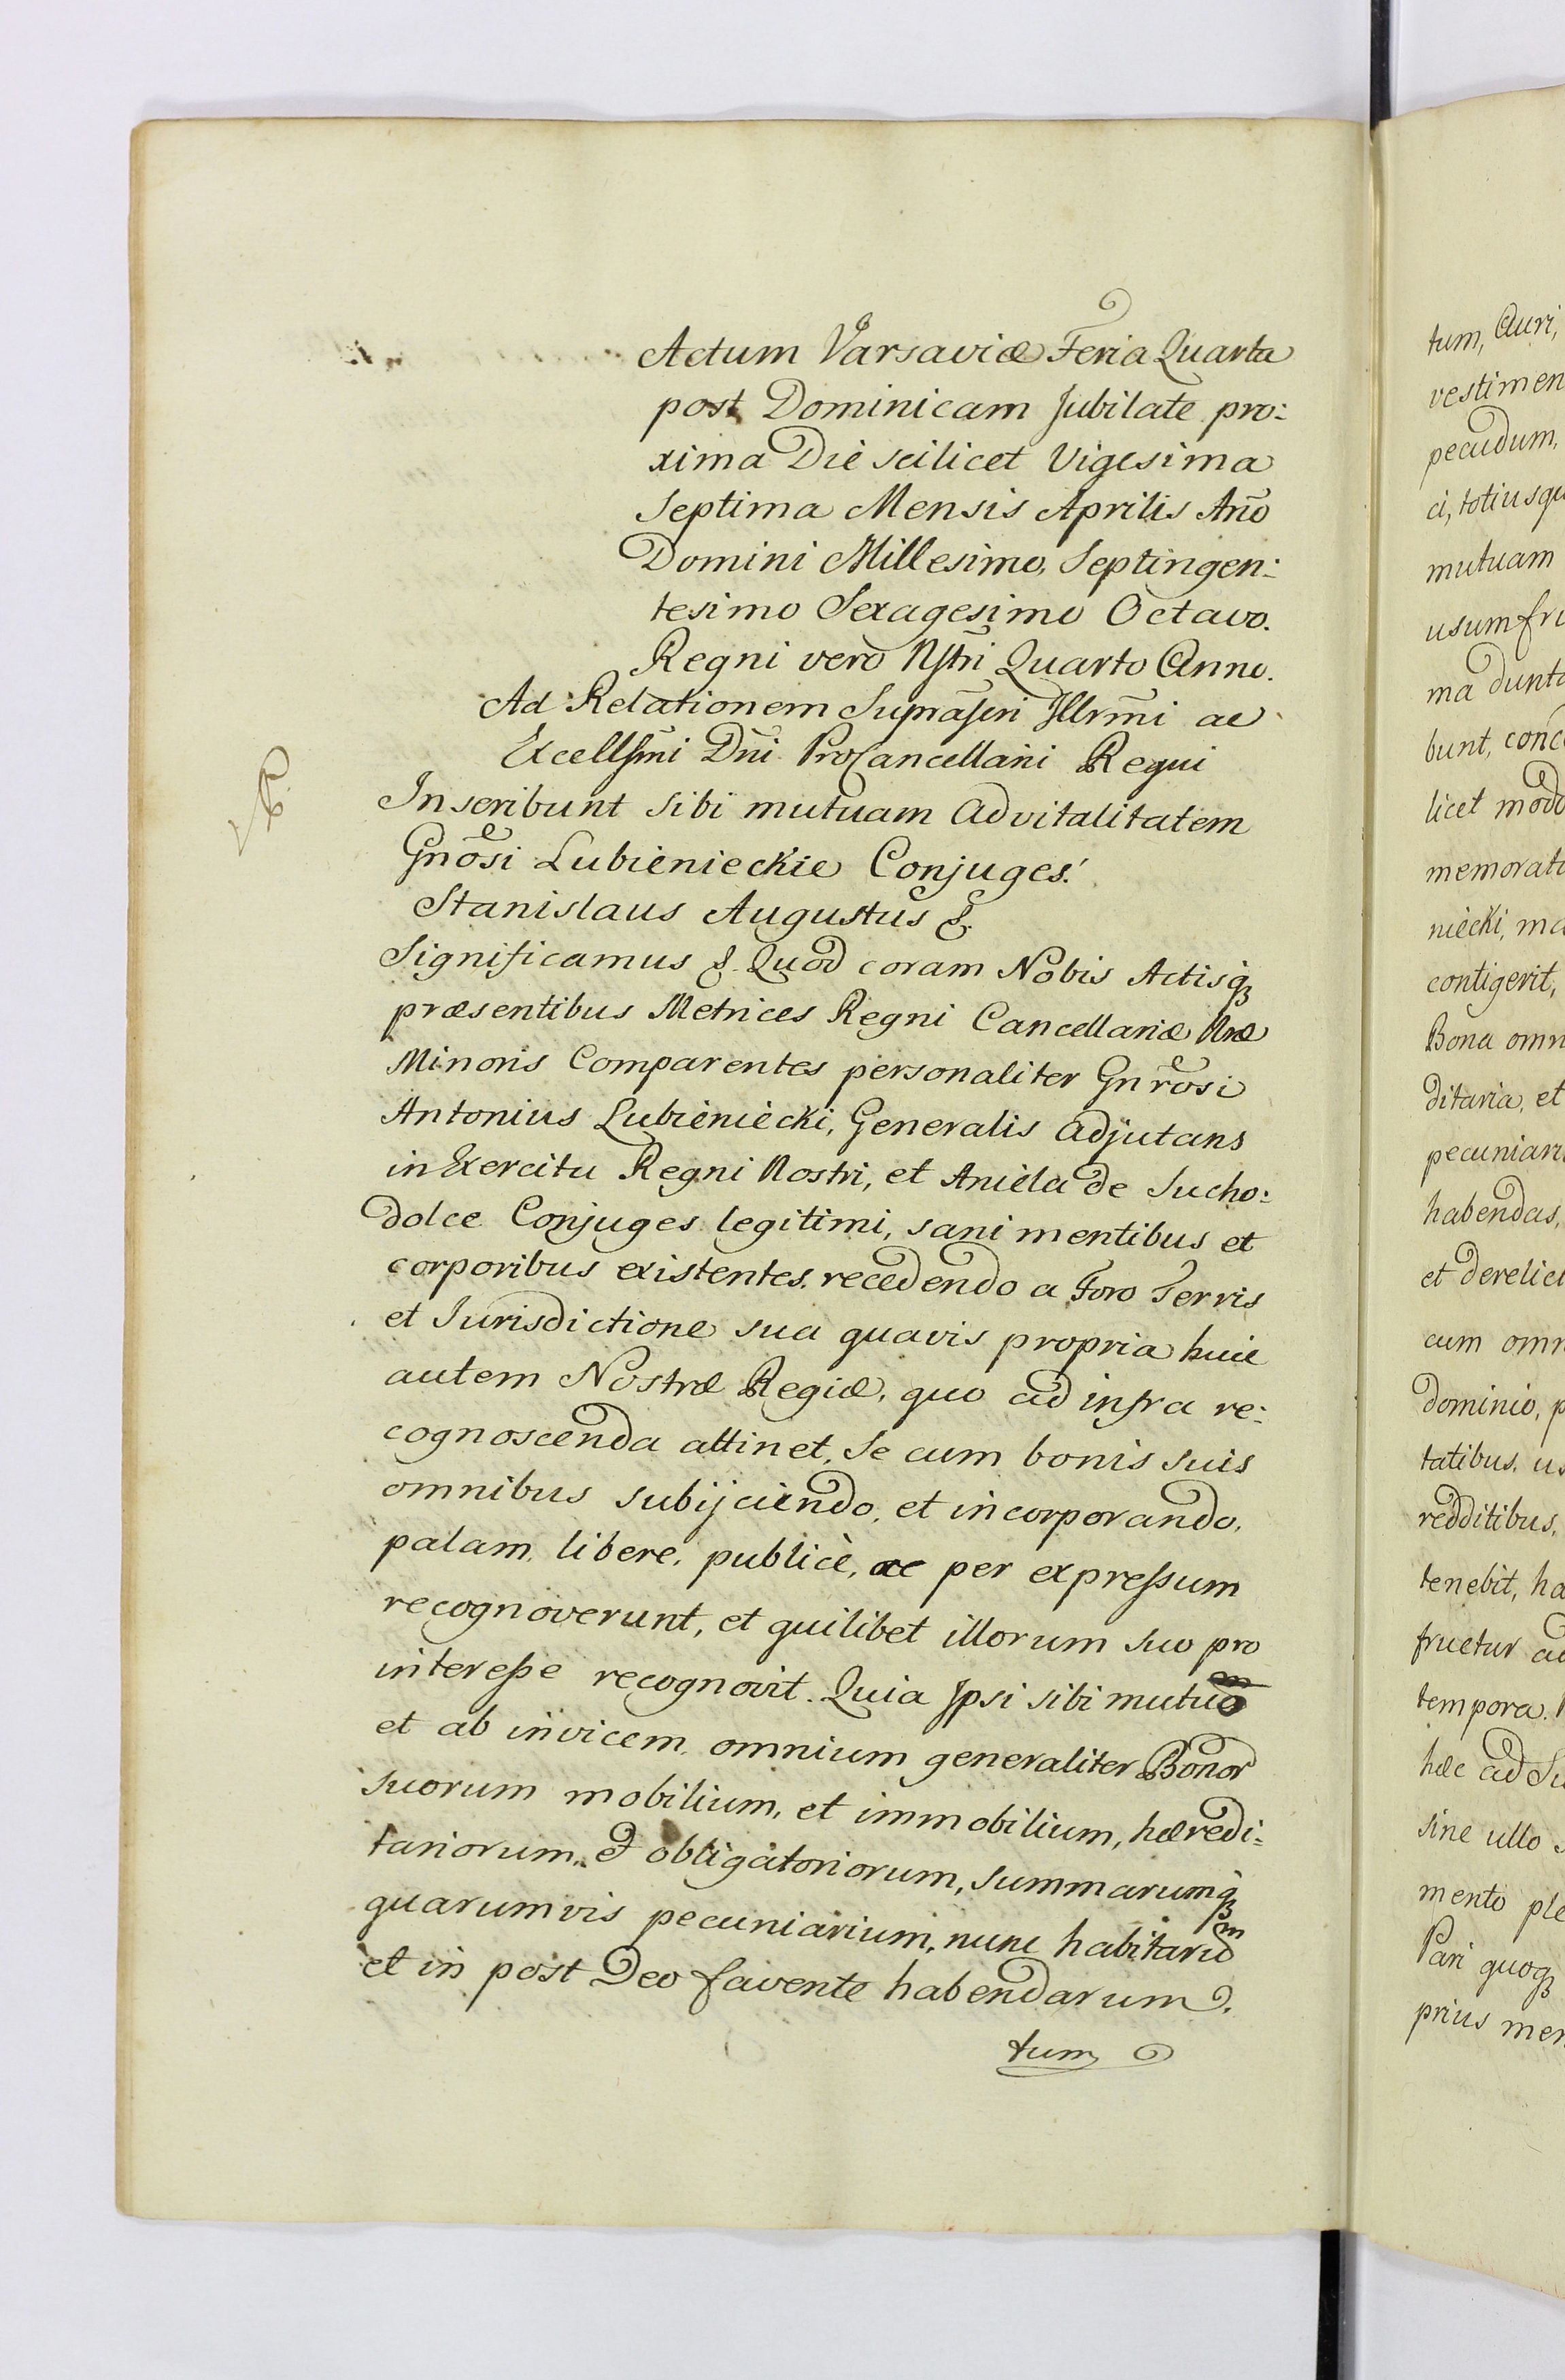 Actum Varsaviæ Feria Quarta
post Dominicam Jubilate pro:
xima Die scilicet Vigesima
Septima Mensis Aprilis Anō
Domini Millesimo, Septingen:
tesimo Sexagesimo Octavo.
Regni vero Nstri Quarto Anno.
Ad Relationem Suprascri Illrm̃i ac
Excellsm̃i Dñi ProCancellarii Regni
Inscribunt sibi mutuam Advitalitatem
Gnõsi Lubienieckie Conjuges.
Stanislaus Augustus &.
Significamus &. Quod coram Nobis Actisq̃
præsentibus Metrices Regni Cancellariæ Nræ
Minoris Comparentes personaliter Gnrõsi
Antonius Lubieniecki, Generalis Adjutans
in Exercitu Regni Nostri, et Aniela de Sucho:
dolce Conjuges legitimi, sani mentibus et
corporibus existentes, recedendo a Foro Terris
et Jurisdictione sua quavis propria huic
autem Nostræ Regiæ, quo ad infra re:
cognoscenda attinet, Se cum bonis suis
omnibus subijciendo, et incorporando,
palam, libere, publicè, ac per expressum
recognoverunt, et quilibet illorum suo pro
interesse recognovit. Quia Ipsi sibi mutuo
et ab invicem, omnium generaliter Bonor
suorum mobilium, et immobilium, hæredi:
tariorum, & obligatoriorum, summarumq̃
quarumvis pecuniarium, nunc habitaru͠m
et in post Deo favente habendarum.
tum
tum, Auri,
vestimen
pecudum,
ci, totiusqu
mutuam
usumfru
ma dunta
bunt, conce
licet modo
memorati
niecki, ma
contigerit,
Bona omn
ditaria, et
pecuniari
habendas,
et derelict
cum omn
dominio, p
tatibus, us
redditibus,
tenebit, ha
fruetur ad
tempora.
hæc ad Su
sine ullo
mento ple
Pari quoq̃
prius mem